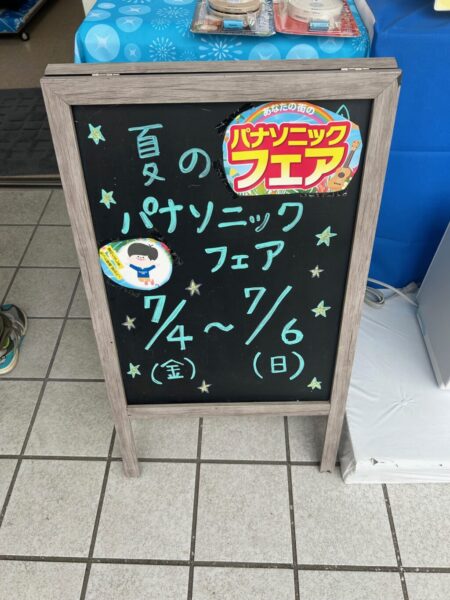 あなたの街の
パナソニック
フェア
夏の
パナソニック
フェア
7/4～7/6
(金) (日)